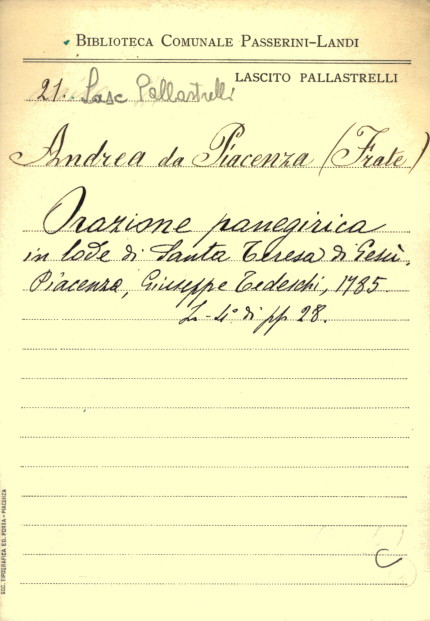 BIBLIOTECA COMUNALE PASSERINI-LANDI
LASCITO PALLASTRELLI
21. Lasc Pallastrelli
Andrea da Piacenza (Frate)
Orazione panegirica
in lode di Santa Teresa di Gesù.
Piacenza, Giuseppe Tedeschi, 1785.
L - 4° di pp 28.
C
SOC. TIPOGRAFICA ED. PORTA - PIACENZA